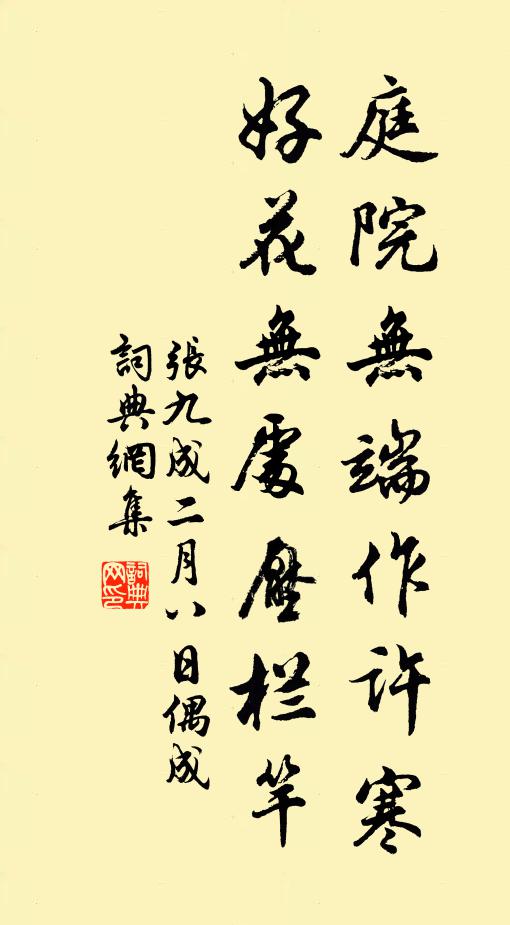 庭院無端作許寒
好花無處壓栏竿
張九成二月八日偶成
詞典網集
詞典網印